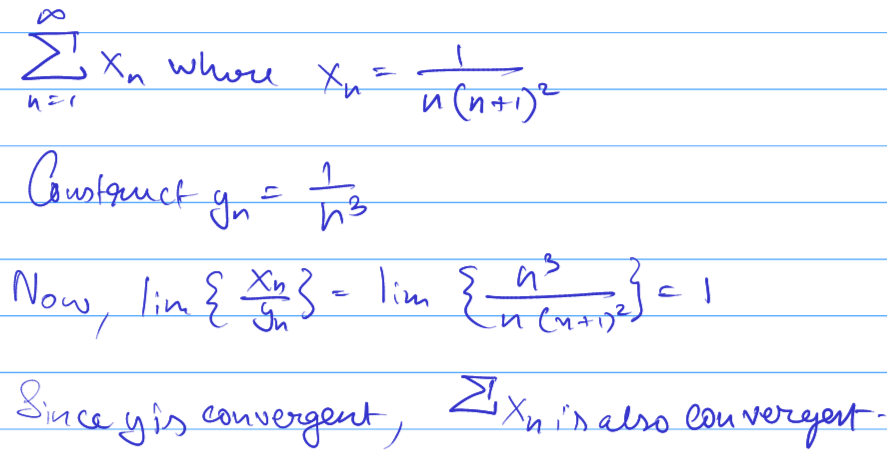 ∞∑n=1 xₙ where xₙ = 1/n(n+1)²
Construct yₙ = 1/n³
Now, lim { xₙ/yₙ } = lim { n³/n(n+1)² } = 1
Since y is convergent, ∑xₙ is also convergent.